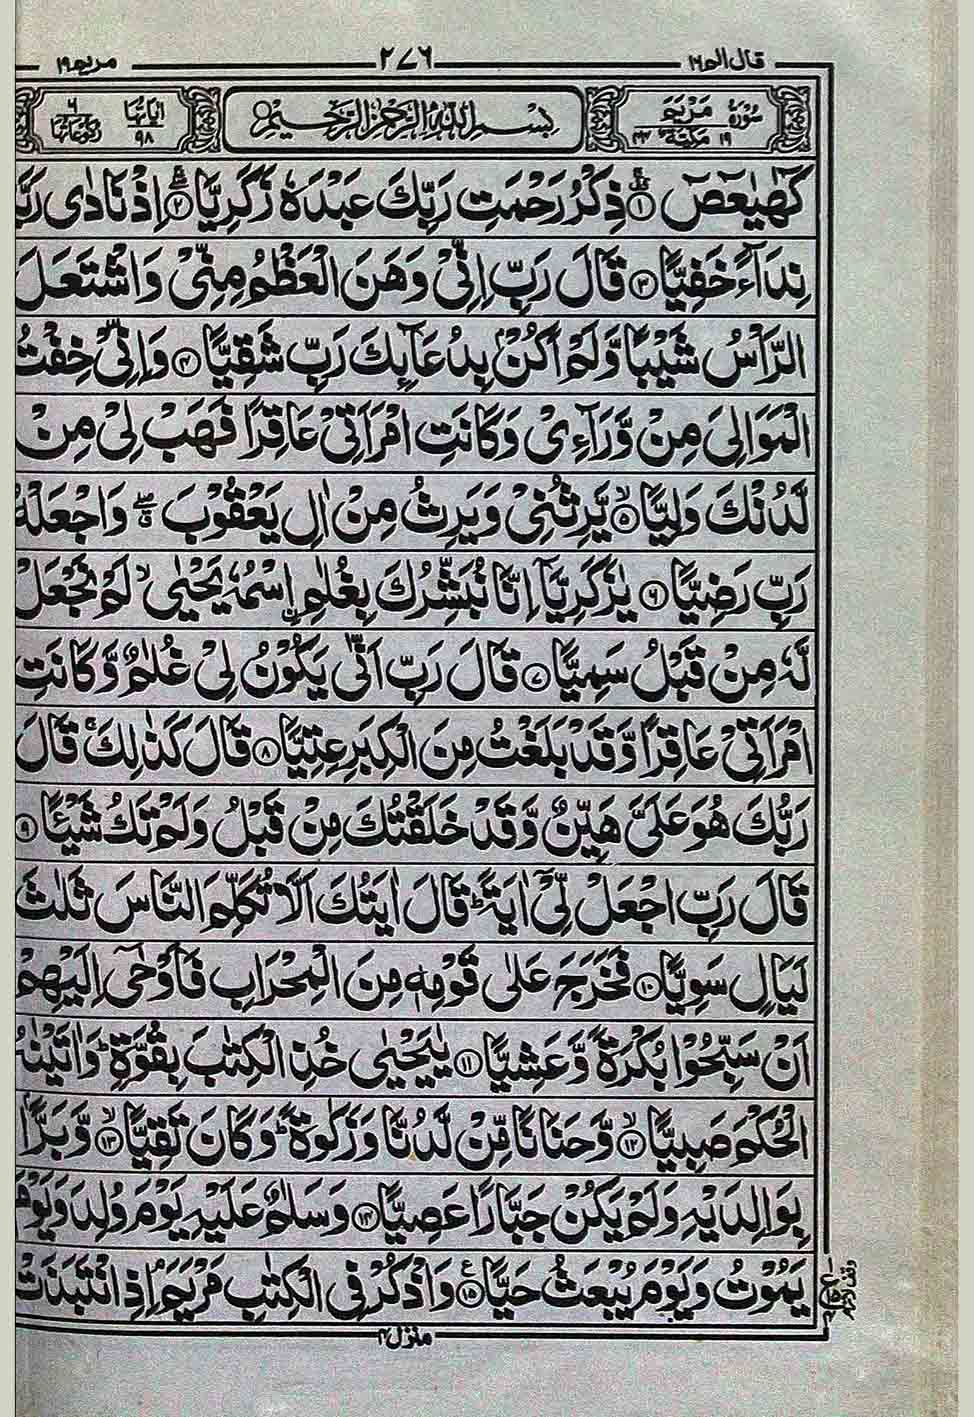 قال الم ١٦ ٢٧٦ مريم ١٩
سُوْرَةُ مَرْيَمَ ١٩ مَكِّيَّةٌ ٤٤ بِسْمِ اللّٰهِ الرَّحْمٰنِ الرَّحِيْمِ اٰيَاتُهَا ٩٨ رُكُوْعَاتُهَا ٦
كٓهٰيٰعٓصٓ ۝١ ذِكْرُ رَحْمَتِ رَبِّكَ عَبْدَهٗ زَكَرِيَّا ۝٢ اِذْ نَادٰى رَبَّ
نِدَآءً خَفِيًّا ۝٣ قَالَ رَبِّ اِنِّىْ وَهَنَ الْعَظْمُ مِنِّىْ وَاشْتَعَلَ
الرَّاْسُ شَيْبًا وَّلَمْ اَكُنْۢ بِدُعَآئِكَ رَبِّ شَقِيًّا ۝٤ وَاِنِّىْ خِفْتُ
الْمَوَالِىَ مِنْ وَّرَآءِىْ وَكَانَتِ امْرَاَتِىْ عَاقِرًا فَهَبْ لِىْ مِنْ
لَّدُنْكَ وَلِيًّا ۝٥ۙ يَّرِثُنِىْ وَيَرِثُ مِنْ اٰلِ يَعْقُوْبَ ۖۗ وَاجْعَلْهُ
رَبِّ رَضِيًّا ۝٦ يٰزَكَرِيَّآ اِنَّا نُبَشِّرُكَ بِغُلٰمِ اِ۟سْمُهٗ يَحْيٰى ۙ لَمْ نَجْعَلْ
لَّهٗ مِنْ قَبْلُ سَمِيًّا ۝٧ قَالَ رَبِّ اَنّٰى يَكُوْنُ لِىْ غُلٰمٌ وَّكَانَتِ
امْرَاَتِىْ عَاقِرًا وَّقَدْ بَلَغْتُ مِنَ الْكِبَرِ عِتِيًّا ۝٨ قَالَ كَذٰلِكَ ۚ قَالَ
رَبُّكَ هُوَ عَلَىَّ هَيِّنٌ وَّقَدْ خَلَقْتُكَ مِنْ قَبْلُ وَلَمْ تَكُ شَيْئًا ۝٩
قَالَ رَبِّ اجْعَلْ لِّىْٓ اٰيَةً ؕ قَالَ اٰيَتُكَ اَلَّا تُكَلِّمَ النَّاسَ ثَلٰثَ
لَيَالٍ سَوِيًّا ۝١٠ فَخَرَجَ عَلٰى قَوْمِهٖ مِنَ الْمِحْرَابِ فَاَوْحٰٓى اِلَيْهِمْ
اَنْ سَبِّحُوْا بُكْرَةً وَّعَشِيًّا ۝١١ يٰيَحْيٰى خُذِ الْكِتٰبَ بِقُوَّةٍ ؕ وَاٰتَيْنٰهُ
الْحُكْمَ صَبِيًّا ۝١٢ۙ وَّحَنَانًا مِّنْ لَّدُنَّا وَزَكٰوةً ؕ وَكَانَ تَقِيًّا ۝١٣ۙ وَّبَرًّۢا
بِوَالِدَيْهِ وَلَمْ يَكُنْ جَبَّارًا عَصِيًّا ۝١٤ وَسَلٰمٌ عَلَيْهِ يَوْمَ وُلِدَ وَيَوْمَ
يَمُوْتُ وَيَوْمَ يُبْعَثُ حَيًّا ۝١٥ وَاذْكُرْ فِى الْكِتٰبِ مَرْيَمَ اِذِ انْتَبَذَتْ
منزل ٤